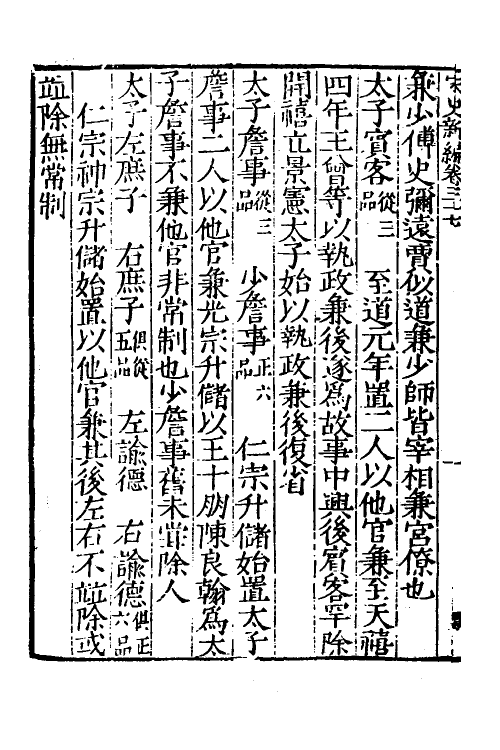 宋史新編卷三七
兼少傅史彌遠賈似道兼少師皆宰相兼宮僚也
太子賓客從三品　至道元年置二人以他官兼至天禧
四年王曾等以執政兼後遂爲故事中興後賓客罕除
開禧立景憲太子始以執政兼後復省
太子詹事從三品　少詹事正六品　仁宗升儲始置太子
詹事二人以他官兼光宗升儲以王十朋陳良翰爲太
子詹事不兼他官非常制也少詹事舊未嘗除人
太子左庶子　右庶子俱從五品　左諭德　右諭德俱正六品
仁宗神宗升儲始置以他官兼其後左右不並除或
並除無常制